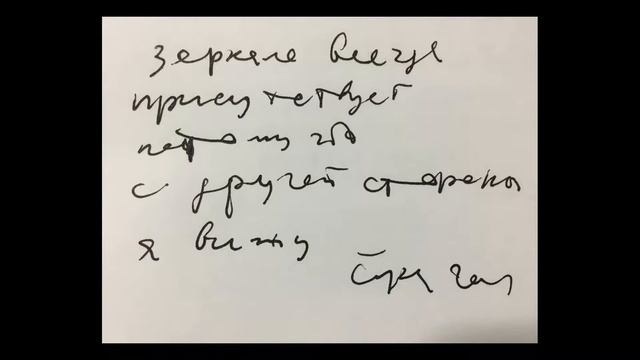 зеркало всегда
присутствует
потому что
с другой стороны
я вижу